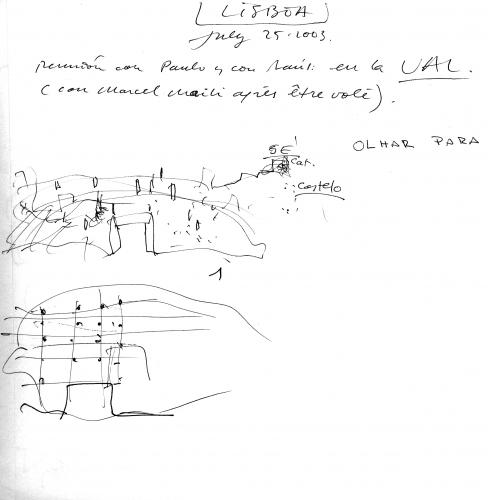 [LISBOA]
July 25·2003.
reunión con Paulo y con en la UAL.
(con Marcel après être volé).
OLHAR PARA
SE
Cat.
Castelo
1